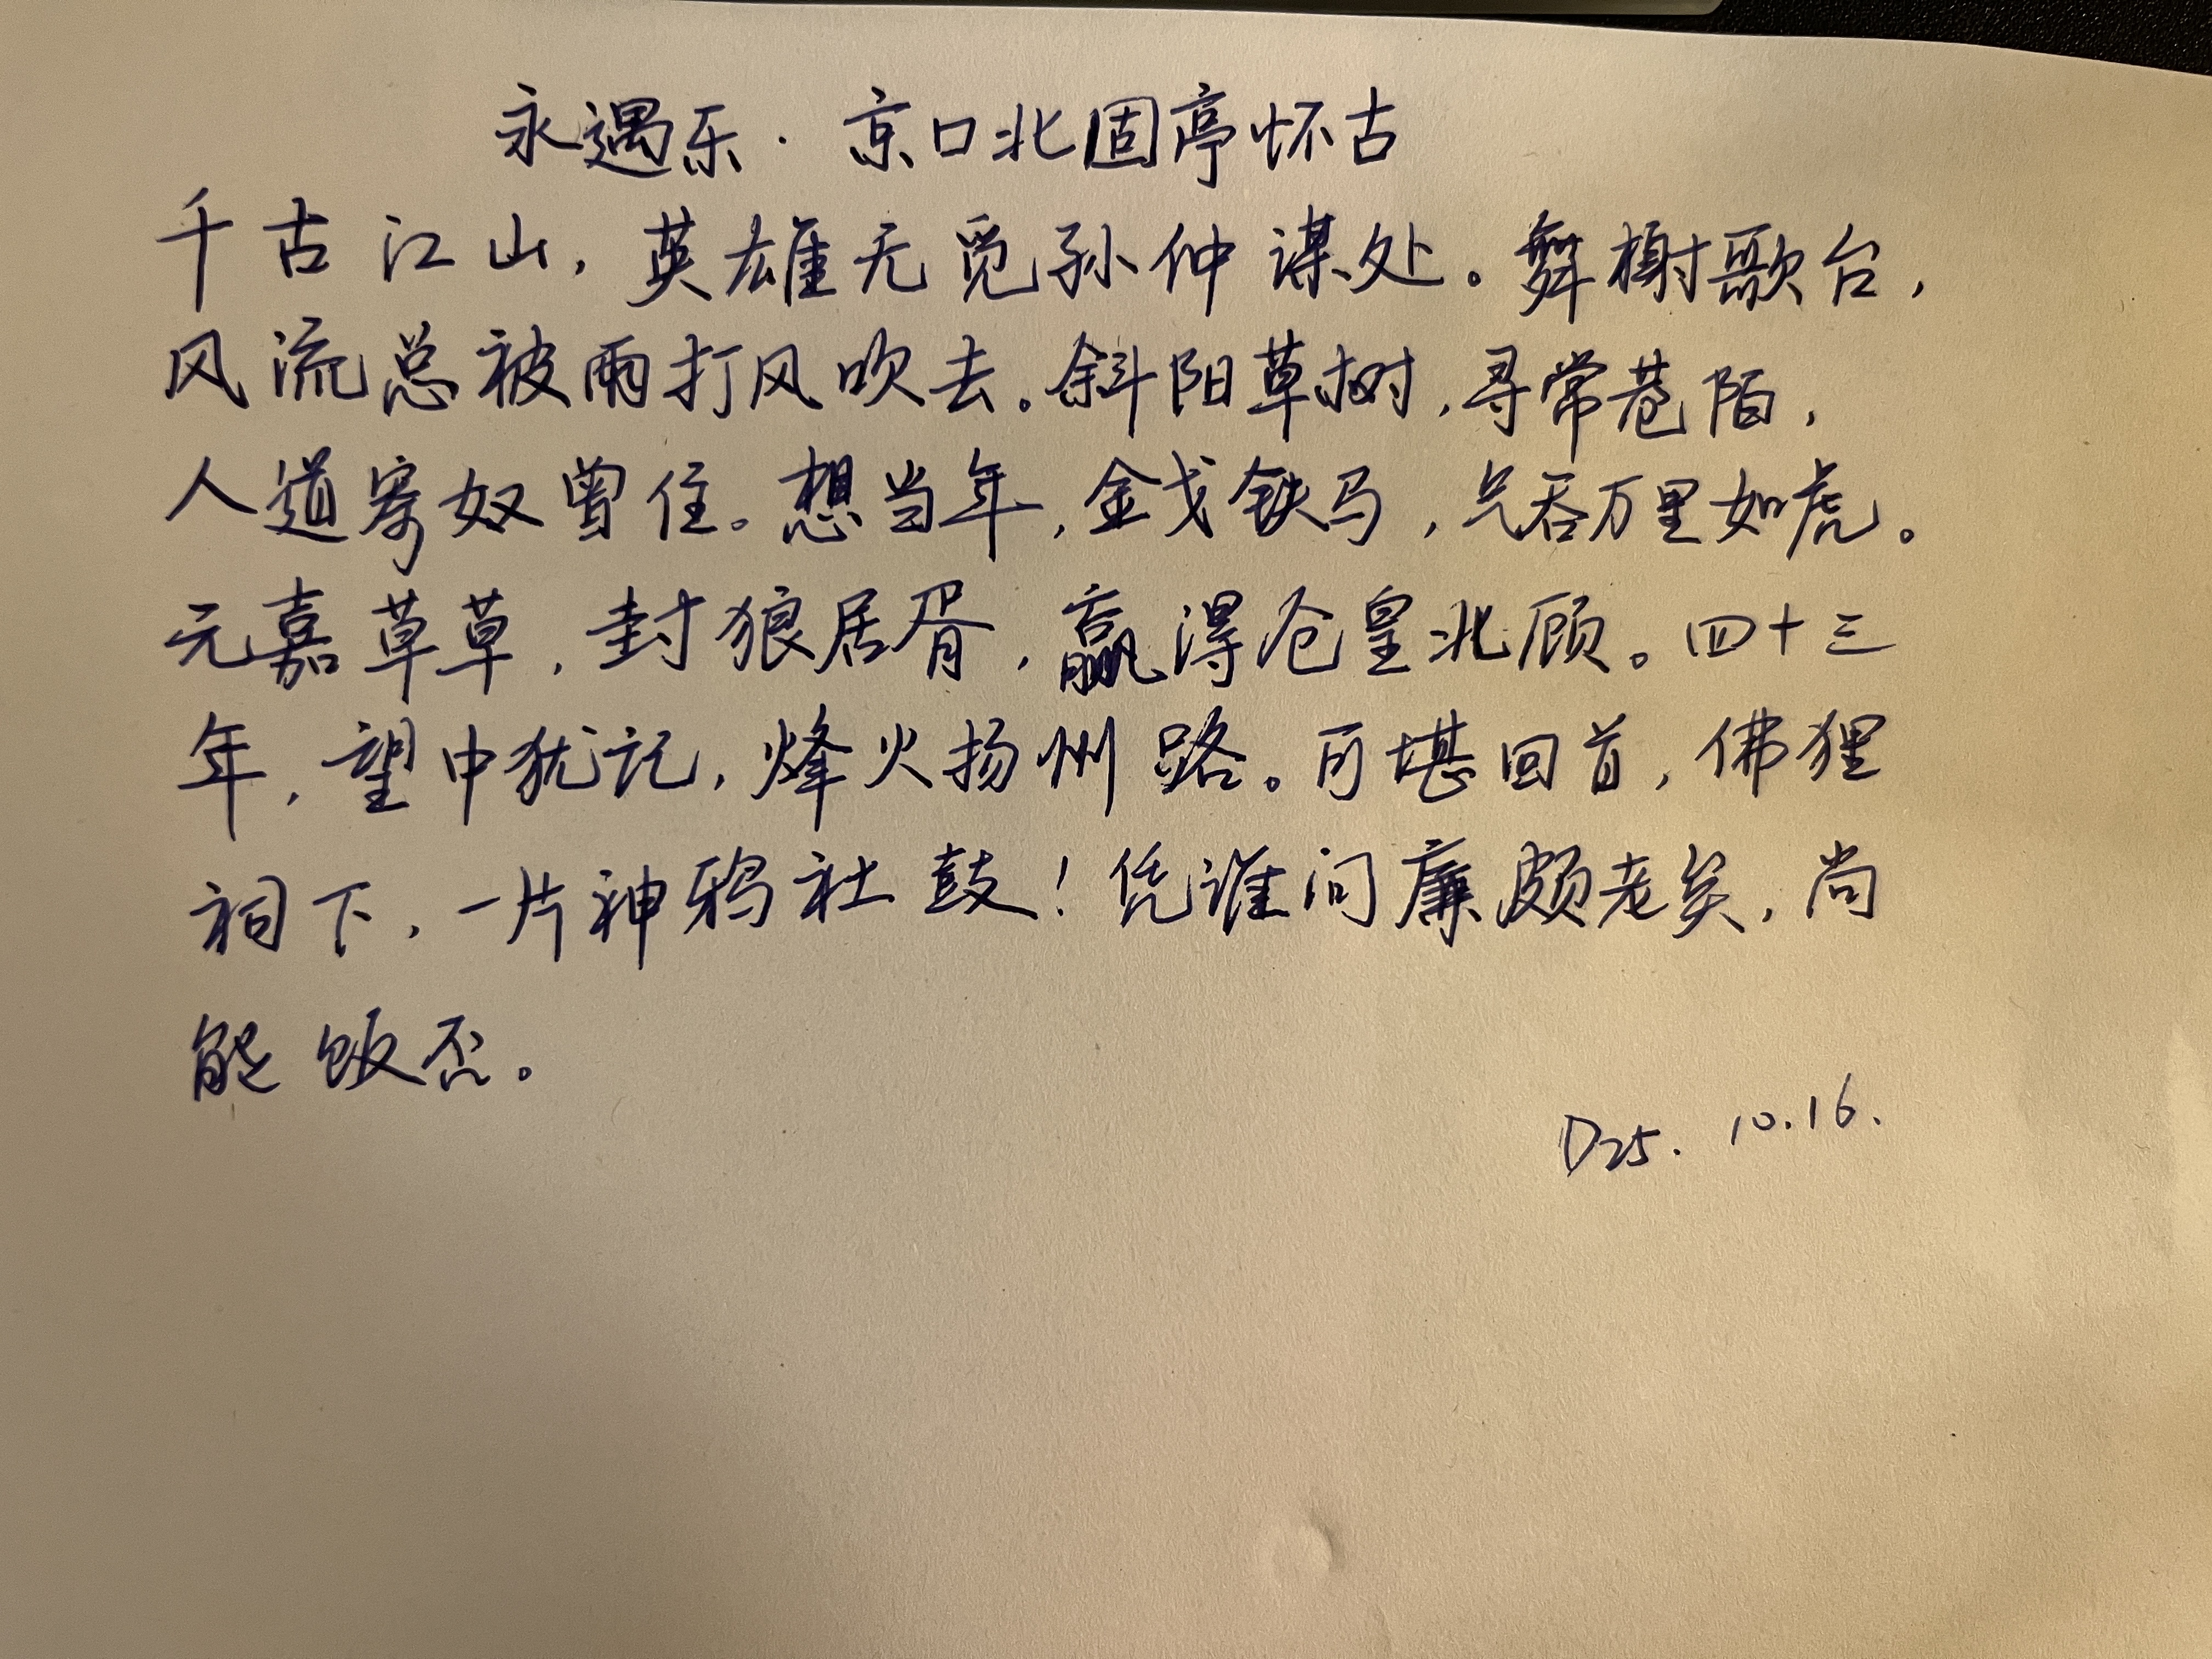 永遇乐·京口北固亭怀古
千古江山，英雄无觅孙仲谋处。舞榭歌台，
风流总被雨打风吹去。斜阳草树，寻常巷陌，
人道寄奴曾住。想当年，金戈铁马，气吞万里如虎。
元嘉草草，封狼居胥，赢得仓皇北顾。四十三
年，望中犹记，烽火扬州路。可堪回首，佛狸
祠下，一片神鸦社鼓！凭谁问廉颇老矣，尚
能饭否。
D25. 10.16.